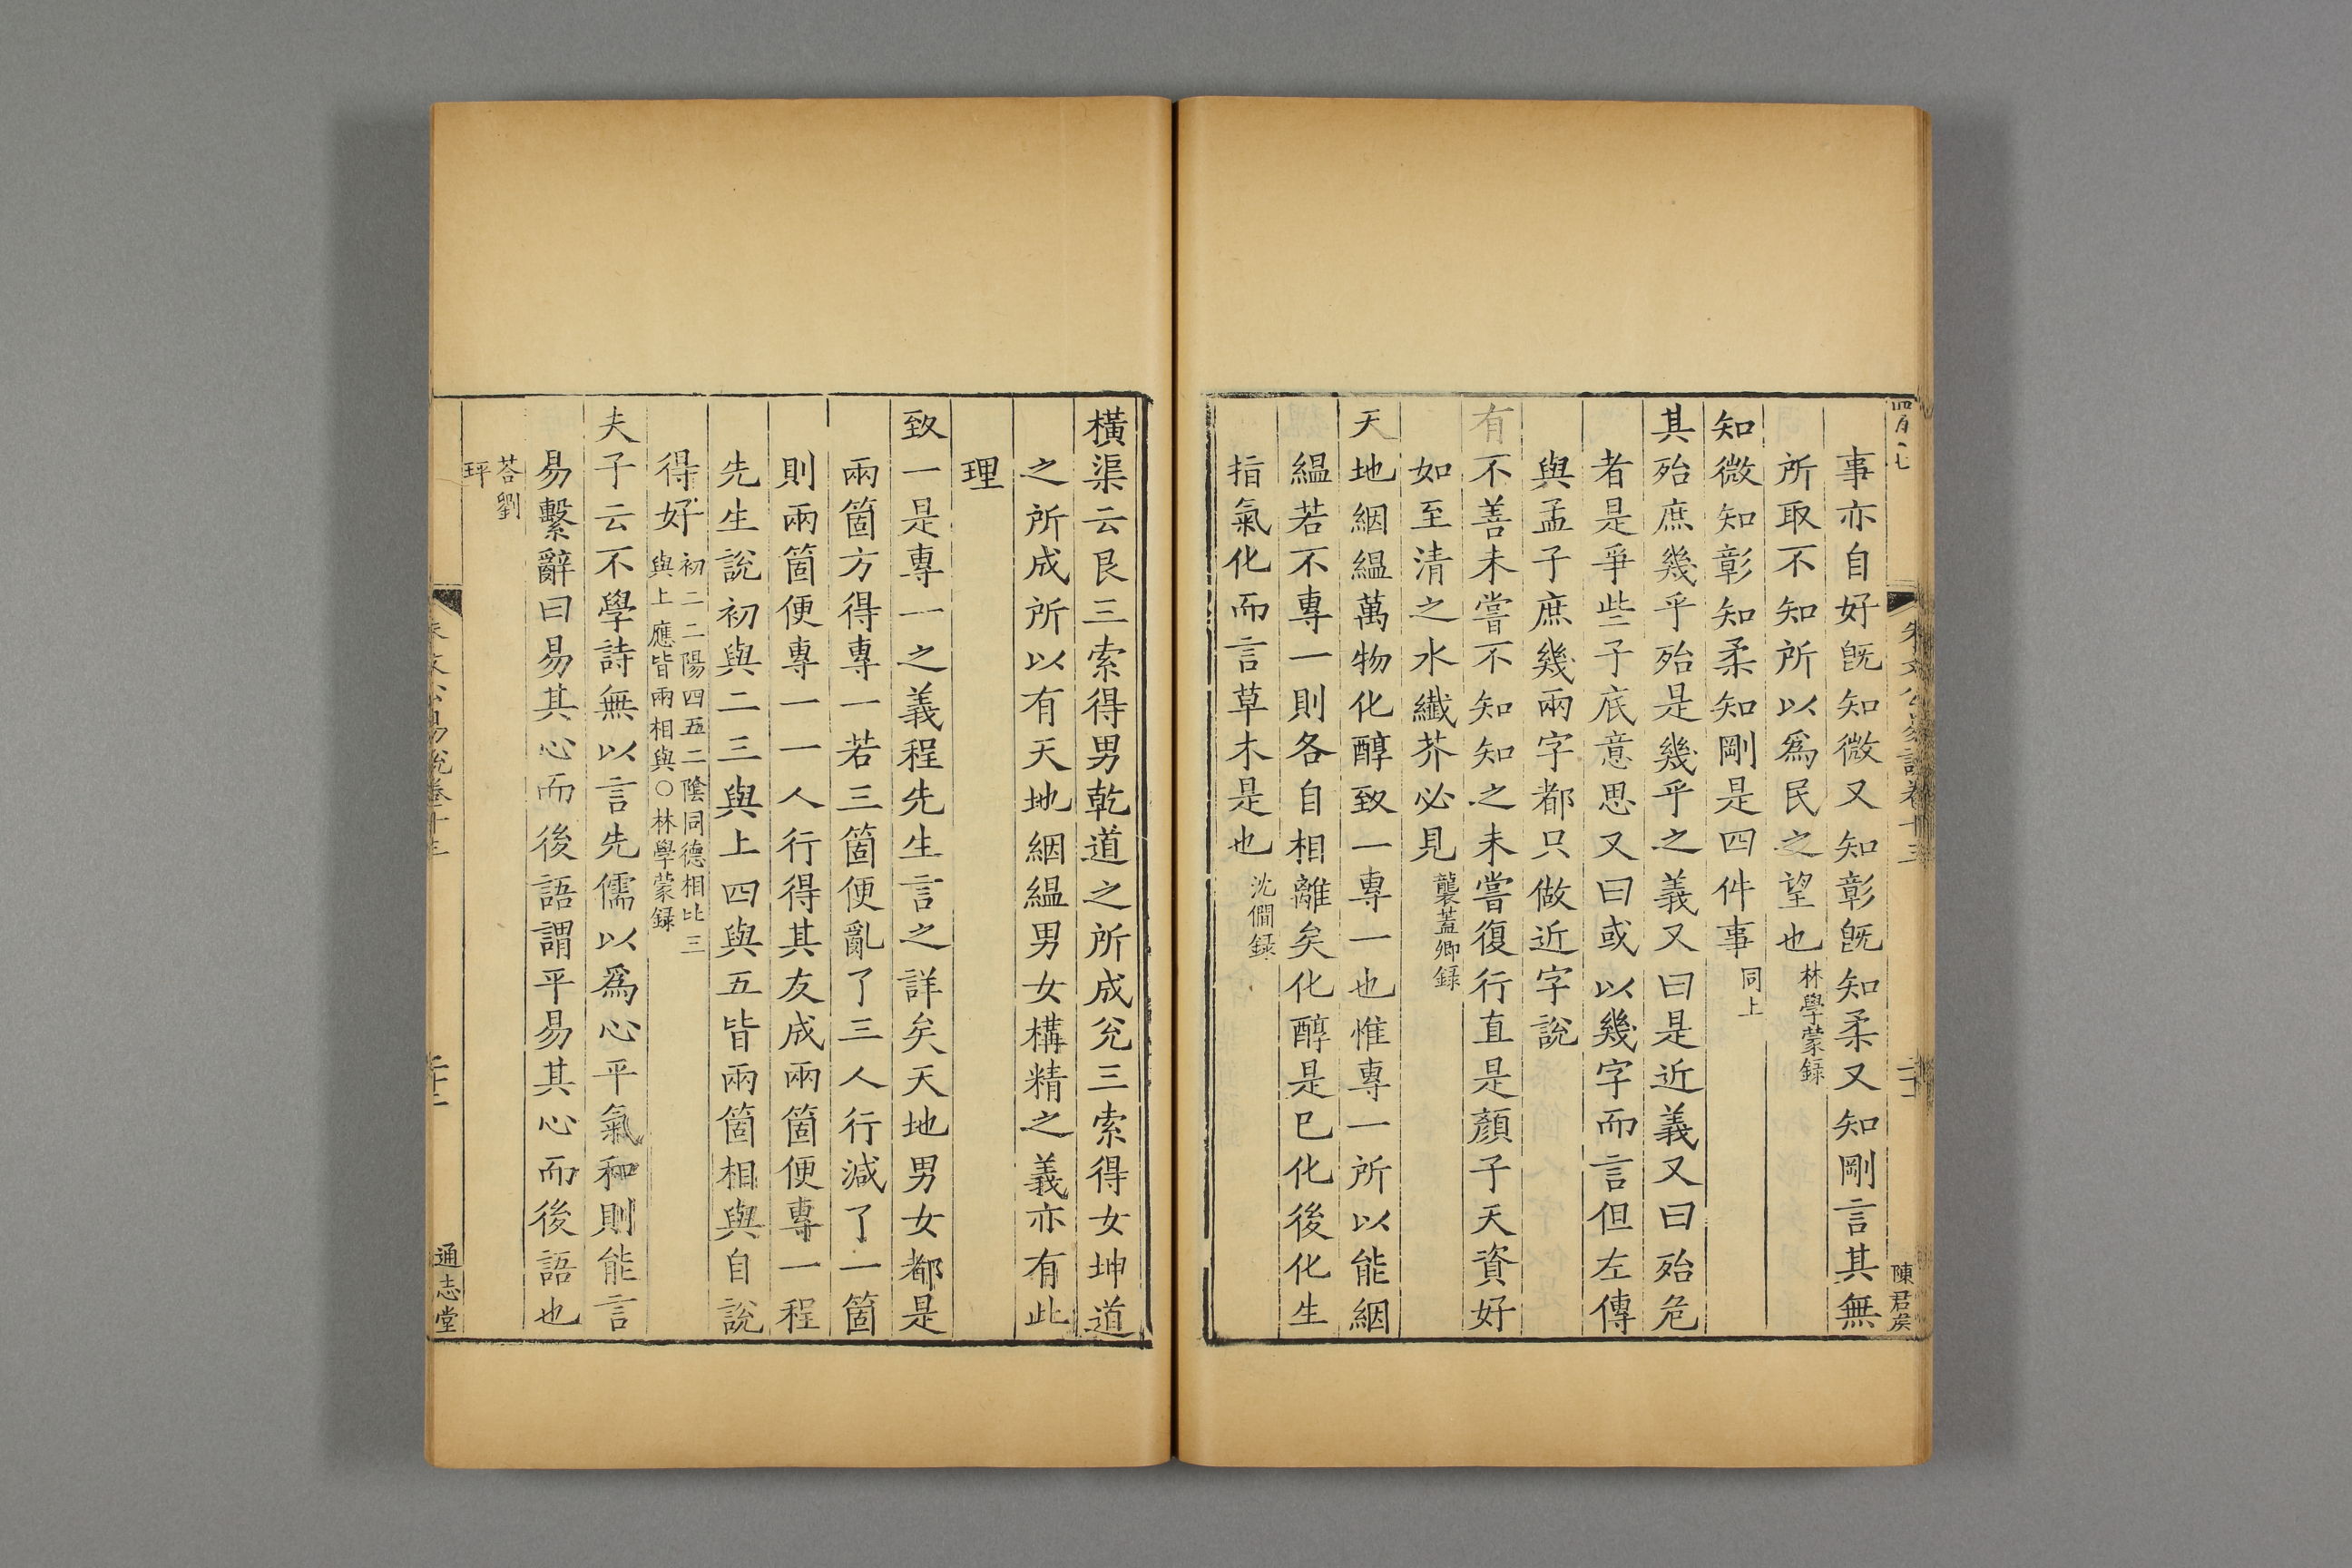 事亦自好旣知微又知彰旣知柔又知剛言其無
所取不知所以爲民之望也林學蒙録
知微知彰知柔知剛是四件事同上
其殆庶幾乎殆是幾乎之義又曰是近義又曰殆危
者是爭些子底意思又曰或以幾字而言但左傳
與孟子庶幾兩字都只做近字說
有不善未嘗不知知之未嘗復行直是顏子天資好
如至清之水纖芥必見龔蓋卿録
天地絪縕萬物化醇致一專一也惟專一所以能絪
縕若不專一則各自相離矣化醇是已化後化生
指氣化而言草木是也沈僩録
陳君矦
橫渠云艮三索得男乾道之所成兊三索得女坤道
之所成所以有天地絪縕男女構精之義亦有此
理
致一是專一之義程先生言之詳矣天地男女都是
兩箇方得專一若三箇便亂了三人行減了一箇
則兩箇便專一一人行得其友成兩箇便專一程
先生說初與二三與上四與五皆兩箇相與自說
得好初二二陽四五二陰同德相比三
與上應皆兩相與○林學蒙録
夫子云不學詩無以言先儒以爲心平氣和則能言
易繫辭曰易其心而後語謂平易其心而後語也
荅劉
玶
朱文公易說卷十三
通志堂